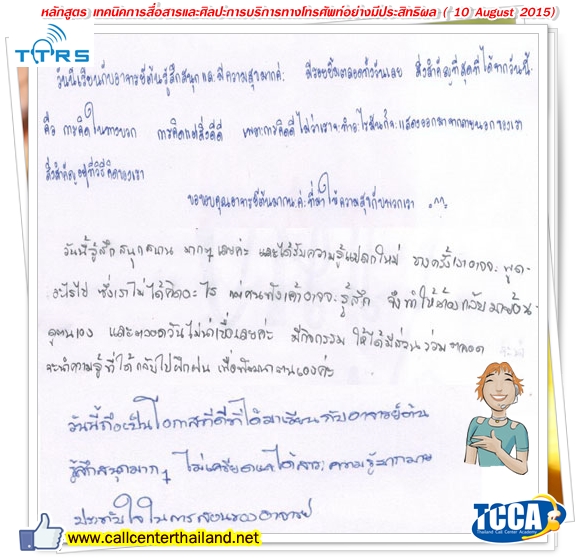 หลักสูตร เทคนิคการสื่อสารและศิลปะการบริการทางโทรศัพท์อย่างมีประสิทธิผล ( 10 August 2015)
TTRS
วันนี้เรียนกับอาจารย์ต้นรู้สึกสนุกและมีความสุขมากค่ะ มีรอยยิ้มตลอดทั้งวันเลย สิ่งสำคัญที่สุดที่ได้จากวันนี้
คือ การคิดในทางบวก การคิดแต่สิ่งดีดี เพราะการคิดดีไม่ว่าเราจะทำอะไรมันก็จะแสดงออกมาจากภายนอกของเรา
สิ่งสำคัญอยู่ที่วิธีคิดของเรา
ขอขอบคุณอาจารย์ต้นมากนะค่ะที่มาให้ความสุขกับพวกเรา =^^=
วันนี้รู้สึกสนุกสนาน มากๆ เลยค่ะ และได้รับความรู้แปลกใหม่ บางครั้งเราอาจจะพูด
อะไรไป ซึ่งเราไม่ได้คิดอะไร แต่คนฟังเค้าอาจจะรู้สึก จึงทำให้ต้องกลับมาย้อน
ดูตนเอง และตลอดวันไม่น่าเบื่อเลยค่ะ มีกิจกรรม ให้ได้มีส่วนร่วมตลอด
จะนำความรู้ที่ได้กลับไปฝึกฝน เพื่อพัฒนาตนเองค่ะ
วันนี้ถือเป็นโอกาสที่ดีที่ได้มาเรียนกับอาจารย์ต้น
รู้สึกสนุกมากๆ ไม่เครียดแต่ได้สาระความรู้มากมาย
ประทับใจในการสอนของอาจารย์
www.callcenterthailand.net
TCCA
Thailand Call Center Academy